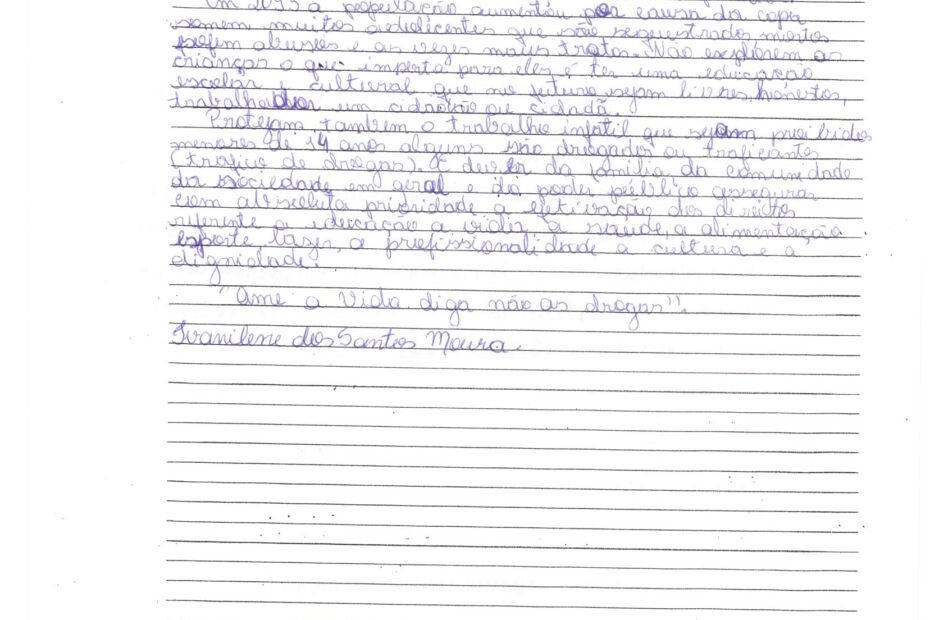 Em 2013 a população aumentou por causa da copa
somem muitos adolicentes que são sequestrados, mortos
sofrem abusos e as vezes maus tratos. Não explorem as
crianças o que importa para eles é ter uma educação
escolar e cultural que no futuro sejam livres, honestos,
trabalhador um cidadão ou cidadã.
Protejam tambem o trabalho infatil que sejam proibidos
menores de 14 anos alguns são drogados ou traficantes
(trafico de drogas). É dever da familia, da comunidade
da sociedade em geral e do poder público assegurar
com absoluta prioridade a efetivação dos direitos
referente a educação a vida, a saude, a alimentação
esporte, lazer, a profissionalidade a cultura e a
dignidade.
"Ame a vida diga não as drogas".
Ivanilene dos Santos Moura.